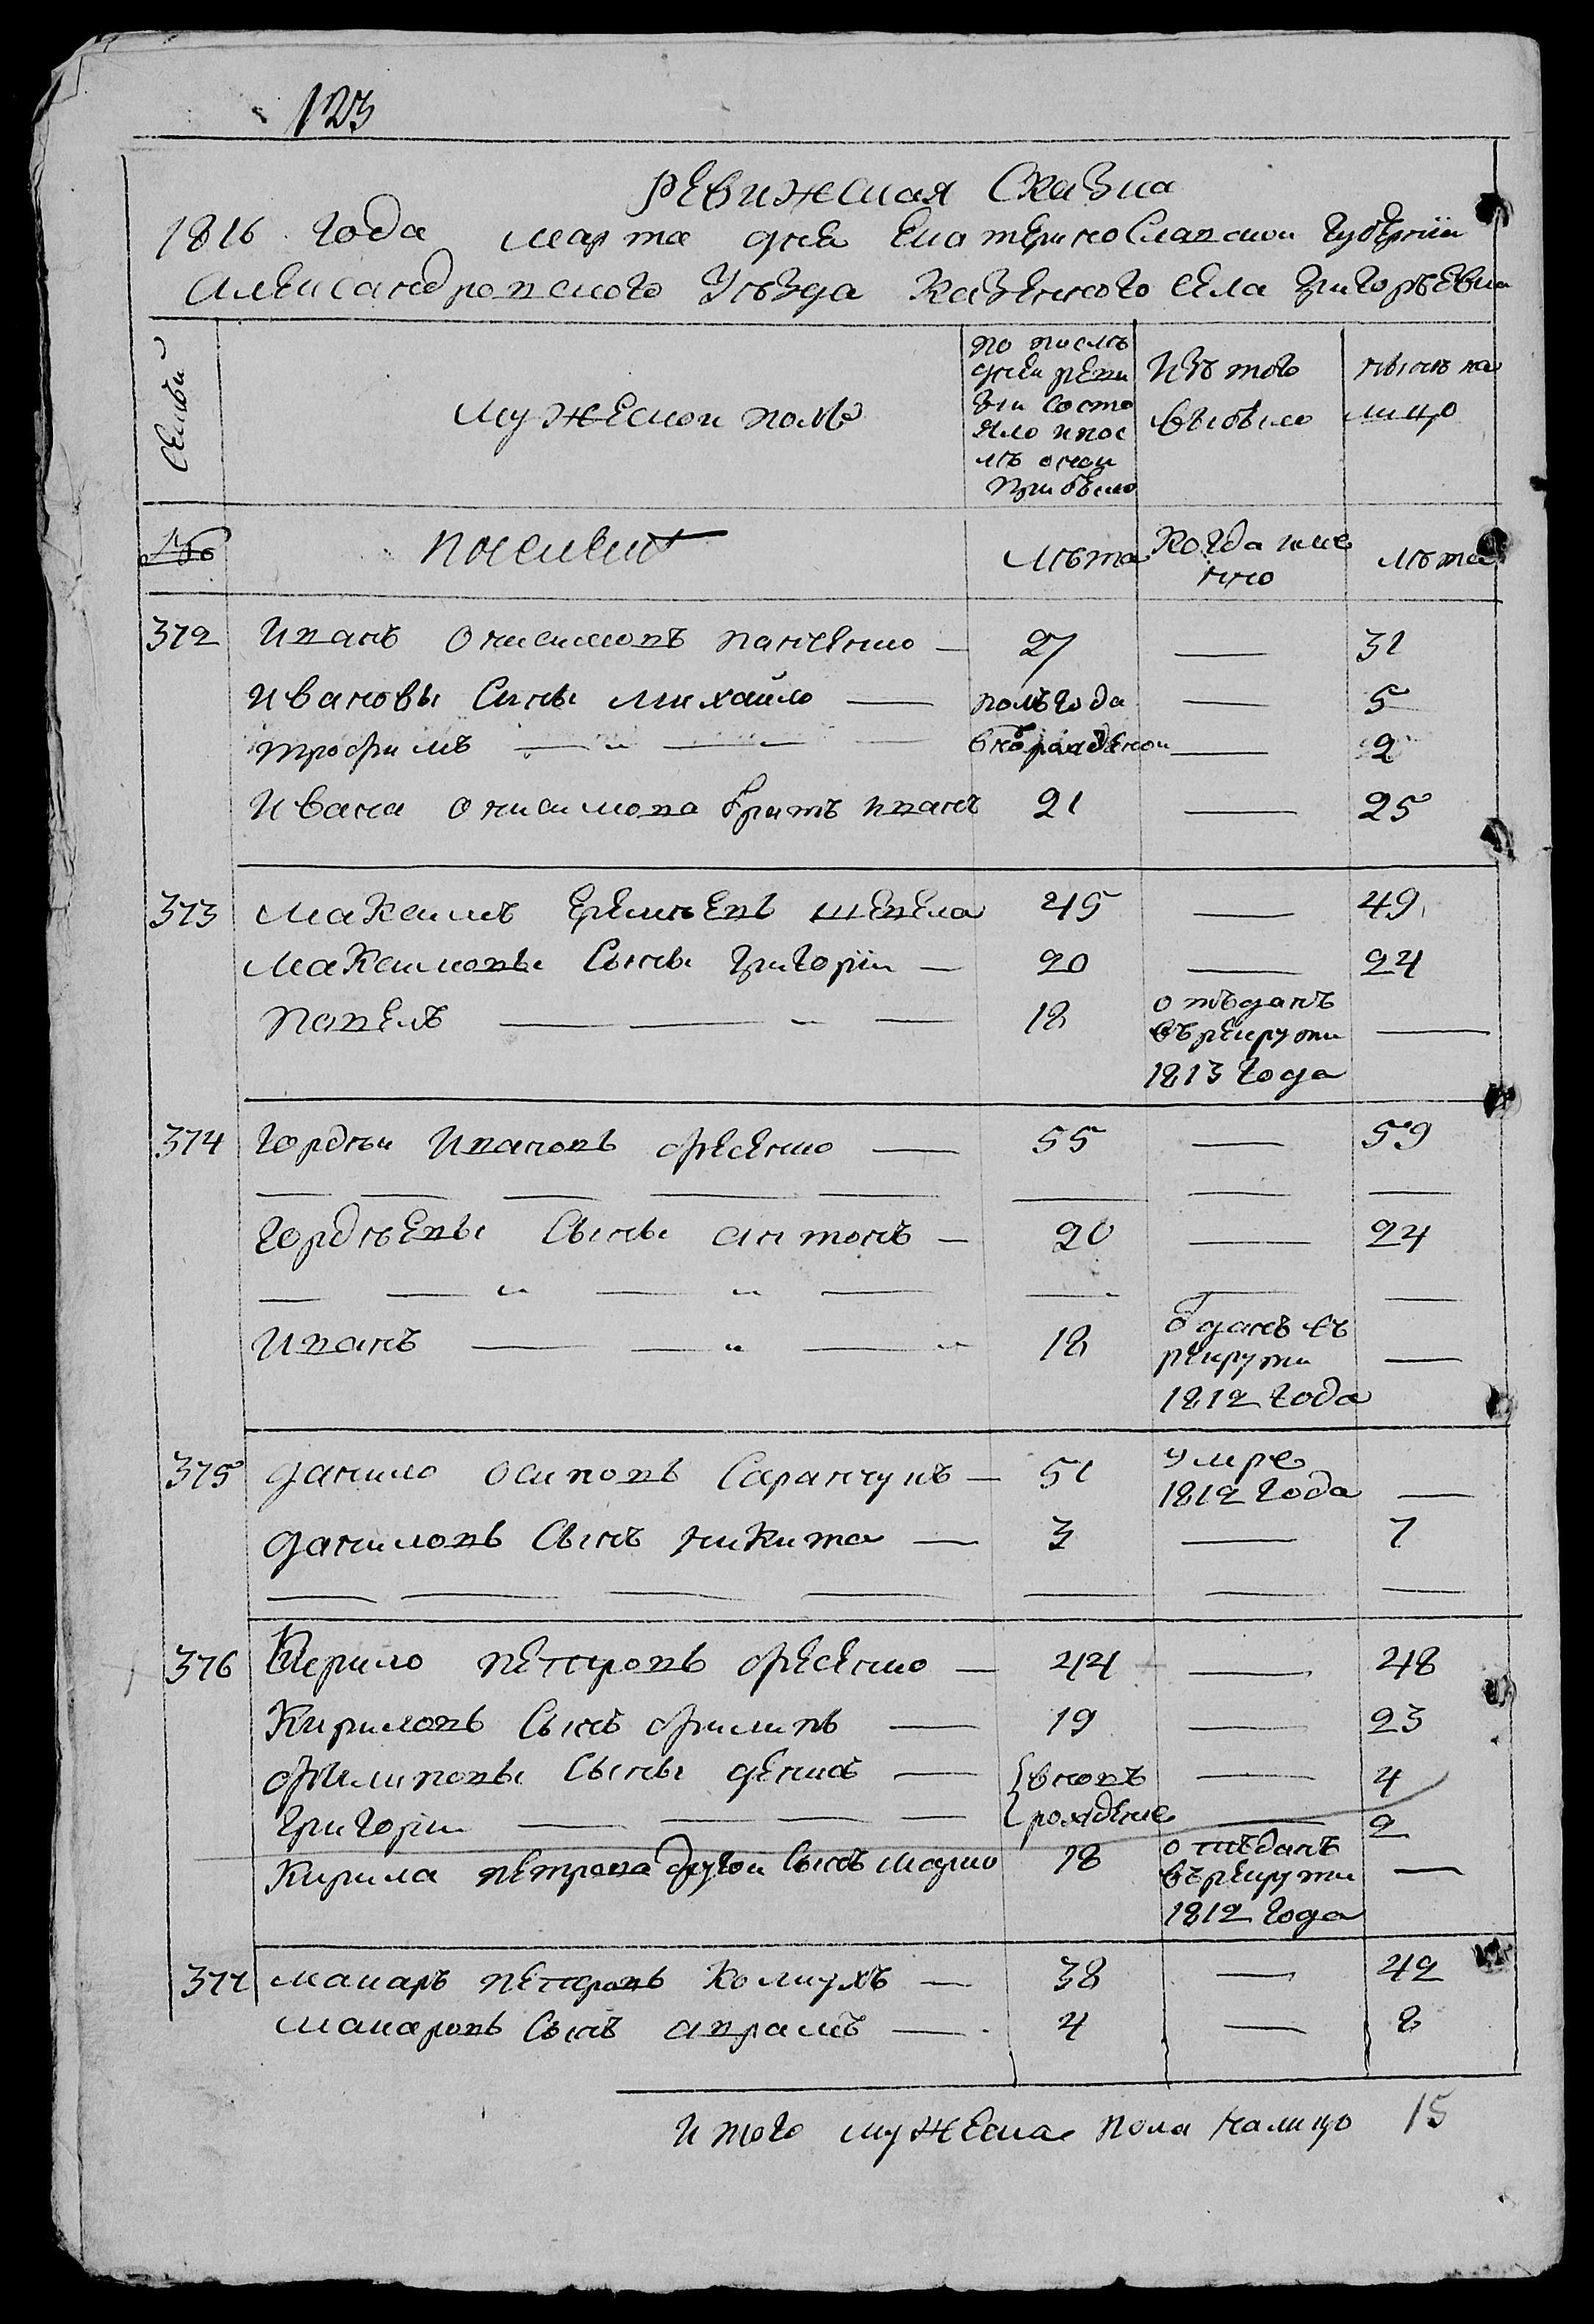 123
Ревижская Сказка
1816 года марта дня Екатеринославской губернїи
Александровского Уезда Казенного села Григорьевки
Семьи
мужеской полъ
по после
дней реви
зїи состо
яло и пос
лѣ оной
прибыло
Изъ того
выбыло
нынѣ на
лицо
№
лѣта
Когда име
нно
лѣта
372 Иванъ Онисимовъ панченко — 27 — 31
Ивановы Сыны михайло — полъгода — 5
трофимъ — " — — вновѣрожденой — 2
Ивана Онисимова братъ иванъ 21 — 25
373 Максимъ Еремѣевъ шевела 45 — 49
Максимовы Сыны григорїи — 20 — 24
павелъ — — " — 18 отъданъ
въ рекруты —
1813 года
374 Гордѣи Ивановъ фесенко — 55 — 59
Гордѣевы Сыны антонъ — 20 — 24
Иванъ — — " — " 18 отданъ въ
рекруты —
1812 года
375 данило осиповъ Саранчукъ — 51 умре
1812 года —
даниловъ Сынъ никита — 3 — 7
376 Кирило петровъ фесенко — 44 — 48
Кириловъ Сынъ филипъ — 19 — 23
филиповы Сыны денисъ — вновъ — 4
григорїи — — — — рождение — 2
Кирила петрова другой Сынъ марко 18 отъданъ
въ рекруты —
1812 года
377 макаръ петровъ Колмухъ — 38 — 42
макаровъ Сынъ аврамъ — 4 — 8
Итого мужеска пола налицо 15